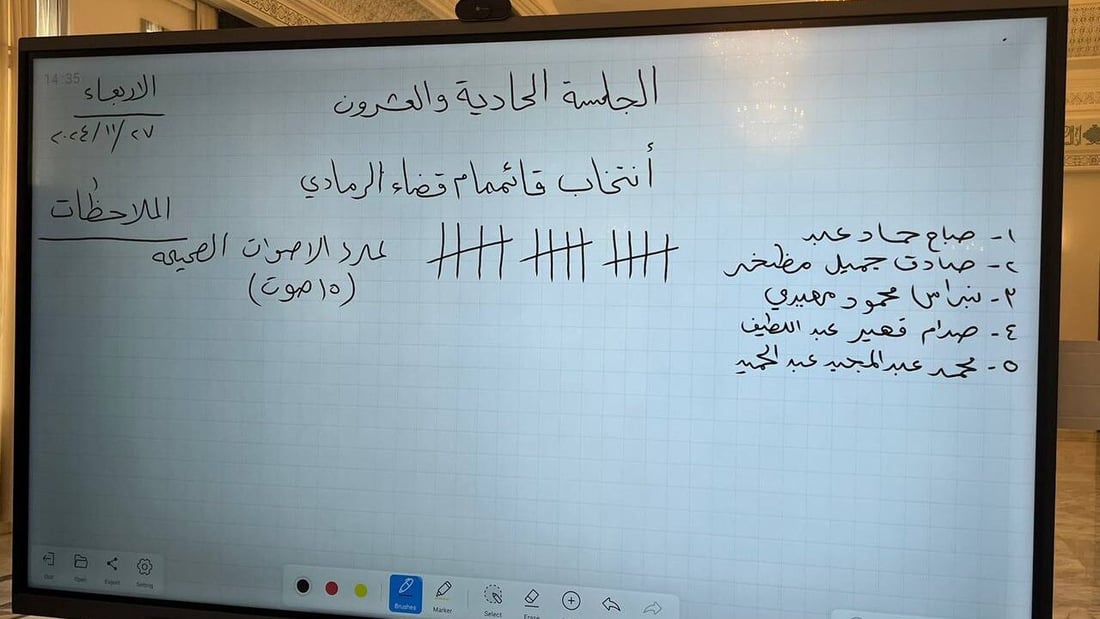 14:35
الاربعاء
٢٠٢٤/١١/٢٧
الجلسة الحادية والعشرون
أنتخاب قائممام قضاء الرمادي
الملاحظات
عدد الاصوات الصحيحه
(١٥ صوت)
١- صباح حماد عبد
٢- صادق جميل
٣- نبراس محمود
٤- صدام قهير عبد اللطيف
٥- محمد عبد المجيد عبد الحميد
Quit
Open
Export
Setting
Brushes
Marker
Select
Erase